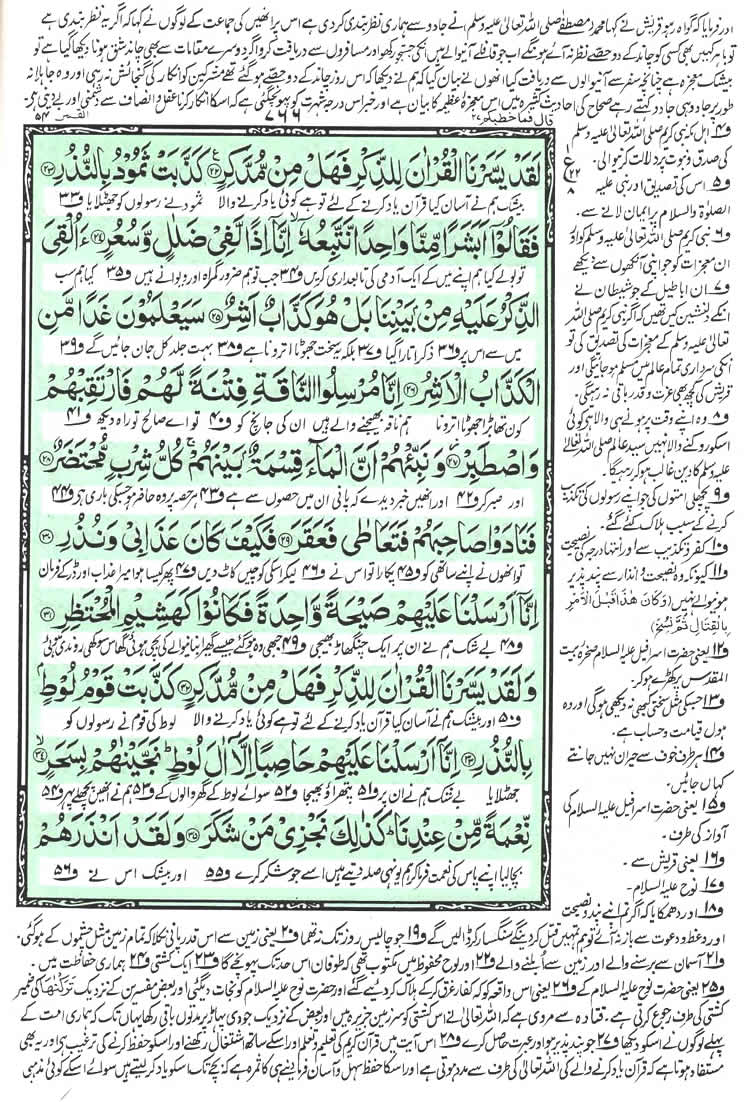 اور فرمایا کہ گواہ رہو قریش نے کہا محمد مصطفےٰ صلی اللہ تعالیٰ علیہ وسلم نے جادو سے ہماری نظر بندی کردی ہے اس پر انھیں کی جماعت کے لوگوں نے کہا کہ اگر یہ نظر بندی ہے
تو باہر کہیں بھی کسی کو چاند کے دو حصے نظر نہ آئے ہونگے اب جو قافلے آنیوالے ہیں انکی جستجو رکھو اور مسافروں سے دریافت کرو اگر دوسرے مقامات سے بھی چاند شق ہونا دیکھا گیا ہے تو
بیشک معجزہ ہے چنانچہ سفر سے آنیوالوں سے دریافت کیا انھوں نے بیان کیا کہ ہم نے دیکھا کہ اس روز چاند کے دو حصے ہوگئے تھے مشرکین کو انکار کی گنجائش نہ رہی اور وہ جاہلانہ
طور پر جادو ہی جادو کہتے رہے صحاح کی احادیث کثیرہ میں اس معجزۂ عظیمہ کا بیان ہے اور خبر اس درجہ شہرت کو پہونچ گئی ہے کہ اسکا انکار کرنا عقل و انصاف سے دشمنی اور بے دینی ہے۔
قال فما خطبکم ۲۷
۷۶۶
القمر ۵۴
لَقَدْ يَسَّرْنَا الْقُرْاٰنَ لِلذِّكْرِ فَهَلْ مِنْ مُّدَّكِرٍ ۝۲۲ كَذَّبَتْ ثَمُوْدُ بِالنُّذُرِ ۝۲۳
بیشک ہم نے آسان کیا قرآن یاد کرنے کے لئے تو ہے کوئی یاد کرنے والا ثمود نے رسولوں کو جھٹلایا ف۳۳
فَقَالُوْٓا اَبَشَرًا مِّنَّا وَاحِدًا نَّتَّبِعُهٗٓ ۙ اِنَّآ اِذًا لَّفِيْ ضَلٰلٍ وَّسُعُرٍ ۝۲۴ ءَاُلْقِيَ
تو بولے کیا ہم اپنے میں کے ایک آدمی کی تابعداری کریں ف۳۴ جب تو ہم ضرور گمراہ اور دیوانے ہیں ف۳۵ کیا ہم سب
الذِّكْرُ عَلَيْهِ مِنْۢ بَيْنِنَا بَلْ هُوَ كَذَّابٌ اَشِرٌ ۝۲۵ سَيَعْلَمُوْنَ غَدًا مَّنِ
میں سے اس پر ف۳۶ ذکر اتارا گیا ف۳۷ بلکہ یہ سخت جھوٹا اترونا ہے ف۳۸ بہت جلد کل جان جائیں گے ف۳۹
الْكَذَّابُ الْاَشِرُ ۝۲۶ اِنَّا مُرْسِلُوا النَّاقَةِ فِتْنَةً لَّهُمْ فَارْتَقِبْهُمْ
کون تھا بڑا جھوٹا اترونا ہم ناقہ بھیجنے والے ہیں ان کی جانچ کو ف۴۰ تو اے صالح تو راہ دیکھ ف۴۱
وَاصْطَبِرْ ۝۲۷ وَنَبِّئْهُمْ اَنَّ الْمَآءَ قِسْمَةٌۢ بَيْنَهُمْ ۚ كُلُّ شِرْبٍ مُّحْتَضَرٌ ۝۲۸
اور صبر کر ف۴۲ اور انھیں خبر دیدے کہ پانی ان میں حصوں سے ہے ف۴۳ ہر حصہ پر وہ حاضر ہو جسکی باری ہے ف۴۴
فَنَادَوْا صَاحِبَهُمْ فَتَعَاطٰى فَعَقَرَ ۝۲۹ فَكَيْفَ كَانَ عَذَابِيْ وَنُذُرِ ۝۳۰
تو انھوں نے اپنے ساتھی کو ف۴۵ پکارا تو اس نے ف۴۶ لیکر اسکی کونچیں کاٹ دیں ف۴۷ پھر کیسا ہوا میرا عذاب اور ڈر کے فرمان
اِنَّآ اَرْسَلْنَا عَلَيْهِمْ صَيْحَةً وَّاحِدَةً فَكَانُوْا كَهَشِيْمِ الْمُحْتَظِرِ ۝۳۱
ف۴۸ بے شک ہم نے ان پر ایک چنگھاڑ بھیجی ف۴۹ جبھی وہ ہوگئے جیسے گھیرا بنانیوالے کی بچی ہوئی گھاس سوکھی روندی ہوئی
وَلَقَدْ يَسَّرْنَا الْقُرْاٰنَ لِلذِّكْرِ فَهَلْ مِنْ مُّدَّكِرٍ ۝۳۲ كَذَّبَتْ قَوْمُ لُوْطٍۢ
ف۵۰ اور بیشک ہم نے آسان کیا قرآن یاد کرنے کے لئے تو ہے کوئی یاد کرنے والا لوط کی قوم نے رسولوں کو
بِالنُّذُرِ ۝۳۳ اِنَّآ اَرْسَلْنَا عَلَيْهِمْ حَاصِبًا اِلَّآ اٰلَ لُوْطٍ ۭ نَجَّيْنٰهُمْ بِسَحَرٍ ۝۳۴
جھٹلایا بے شک ہم نے ان پر ف۵۱ پتھراؤ بھیجا ف۵۲ سوائے لوط کے گھر والوں کے ف۵۳ ہم نے انھیں پچھلے پہر ف۵۴
نِّعْمَةً مِّنْ عِنْدِنَا ۭ كَذٰلِكَ نَجْزِيْ مَنْ شَكَرَ ۝۳۵ وَلَقَدْ اَنْذَرَهُمْ
بچالیا اپنے پاس کی نعمت فرما کر ہم یونہی صلہ دیتے ہیں اسے جو شکر کرے ف۵۵ اور بیشک اس نے ف۵۶
ف۴ اہل مکہ نبی کریم صلی اللہ تعالیٰ علیہ وسلم
کی صدق و نبوت پر دلالت کرنیوالی۔
ف۵ اس کی تصدیق اور نبی علیہ
الصلوٰۃ والسلام پر ایمان لانے سے۔
ف۶ نبی کریم صلی اللہ تعالیٰ علیہ وسلم کو اور
ان معجزات کو جو اپنی آنکھوں سے دیکھے
ف۷ ان اباطیل کے جو شیطان نے
انکے دلنشین کیں تھیں کہ اگر نبی کریم صلی اللہ
تعالیٰ علیہ وسلم کے معجزات کی تصدیق کی تو
انکی سرداری تمام عالم میں مسلم ہوجائیگی اور
قریش کی کچھ بھی عزت و قدر باقی نہ رہیگی۔
ف۸ وہ اپنے وقت پر ہونے ہی والا ہے کوئی
اسکو روکنے والا نہیں سید عالم صلی اللہ تعالیٰ
علیہ وسلم کا دین غالب ہو کر رہیگا۔
ف۹ پچھلی امتوں کی جو اپنے رسولوں کی تکذیب
کرنے کے سبب ہلاک کئے گئے
ف۱۰ کفر و تکذیب سے اور انتہا درجہ کی نصیحت
ف۱۱ کیونکہ وہ نصیحت و انذار سے پند پذیر
ہونیوالے نہیں (وَكَانَ هٰذَا قَبْلَ الْاَمْرِ
بِالْقِتَالِ ثُمَّ نُسِخَ)
ف۱۲ یعنی حضرت اسرافیل علیہ السلام صخرۂ بیت
المقدس پر کھڑے ہوکر۔
ف۱۳ جسکی مثل سختی کبھی نہ دیکھی ہوگی اور وہ
ہول قیامت و حساب ہے۔
ف۱۴ ہر طرف خوف سے حیران نہیں جانتے
کہاں جائیں۔
ف۱۵ یعنی حضرت اسرافیل علیہ السلام کی
آواز کی طرف۔
ف۱۶ یعنی قریش سے۔
ف۱۷ نوح علیہ السلام۔
ف۱۸ اور دھمکایا کہ اگر تم اپنے پند و نصیحت
اور وعظ و دعوت سے باز نہ آئے تو ہم تمہیں قتل کردینگے سنگسار کر ڈالیں گے ف۱۹ جو چالیس روز تک نہ تھما ف۲۰ یعنی زمین سے اس قدر پانی نکلا کہ تمام زمین مثل چشموں کے ہوگئی۔
ف۲۱ آسمان سے برسنے والے اور زمین سے اُبلنے والے ف۲۲ اور لوح محفوظ میں مکتوب تھی کہ طوفان اس حد تک پہونچے گا ف۲۳ ایک کشتی ف۲۴ ہماری حفاظت میں۔
ف۲۵ یعنی حضرت نوح علیہ السلام کے ف۲۶ یعنی اس واقعہ کو کہ کفار غرق کرکے ہلاک کردیئے گئے اور حضرت نوح علیہ السلام کو نجات دیگئی اور بعض مفسرین کے نزدیک تَرَكْنٰهَا کی ضمیر
کشتی کی طرف رجوع کرتی ہے۔ قتادہ سے مروی ہے کہ اللہ تعالیٰ نے اس کشتی کو سرزمین جزیرہ میں اور بعض کے نزدیک جودی پہاڑ پر مدتوں باقی رکھا یہاں تک کہ ہماری امت کے
پہلے لوگوں نے اسکو دیکھا ف۲۷ جو پند پذیر ہو اور عبرت حاصل کرے ف۲۸ اس آیت میں قرآن کریم کی تعلیم و تعلم اور اسکے ساتھ اشتغال رکھنے اور اسکو حفظ کرنے کی ترغیب ہے اور یہ بھی
مستفاد ہوتا ہے کہ قرآن یاد کرنے والے کی اللہ تعالیٰ کی طرف سے مدد ہوتی ہے اور اسکا حفظ سہل و آسان فرمادینے ہی کا ثمرہ ہے کہ بچے تک اسکو یاد کرلیتے ہیں سوائے اسکے کوئی مذہبی